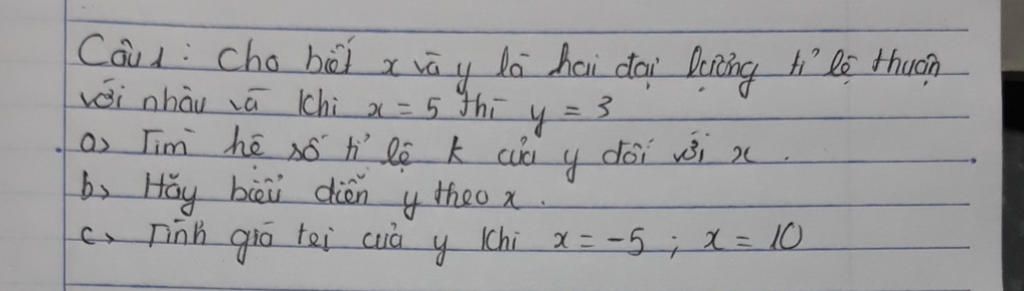 Câu 1: Cho biết x và y là hai đại lượng tỉ lệ thuận
với nhau và khi x = 5 thì y = 3
a) Tìm hệ số tỉ lệ k của y đối với x.
b) Hãy biểu diễn y theo x.
c) Tính giá trị của y khi x = -5; x = 10